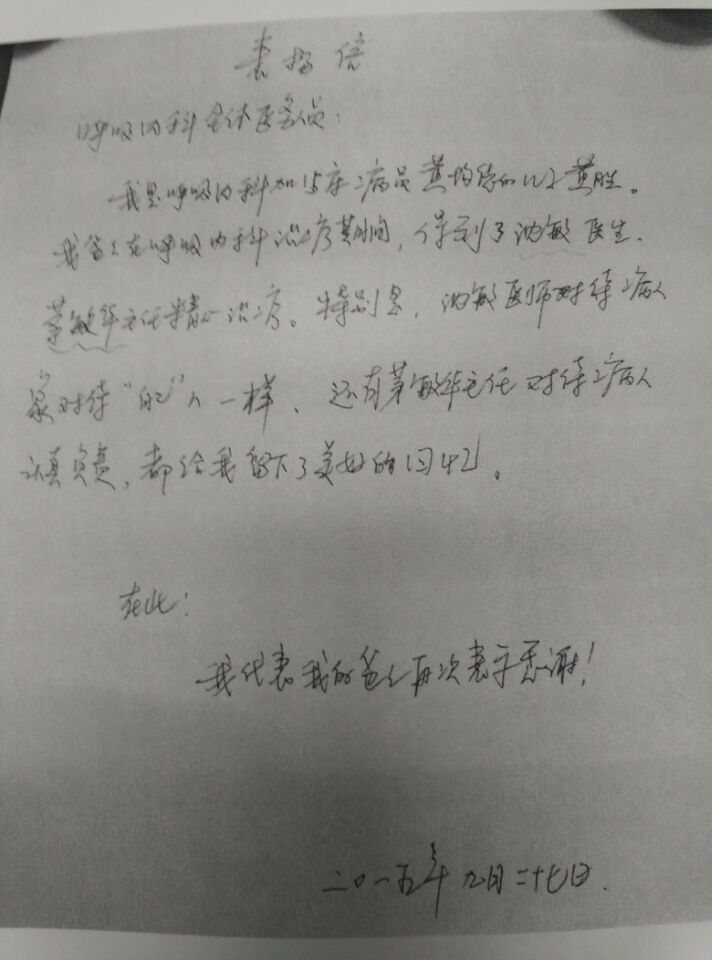 表扬信
呼吸内科全体医务人员:
我是呼吸内科加15床病员黄均德的儿子黄胜。
我爸爸在呼吸内科治疗期间,得到了沈敏医生、
茅敏华主任精心治疗。特别是,沈敏医师对待病人
象对待“自己”人一样、还有茅敏华主任对待病人
认真负责,都给我留下了美好的回忆。
在此:
我代表我的爸爸再次表示感谢!
二〇一五年九月二十七日.